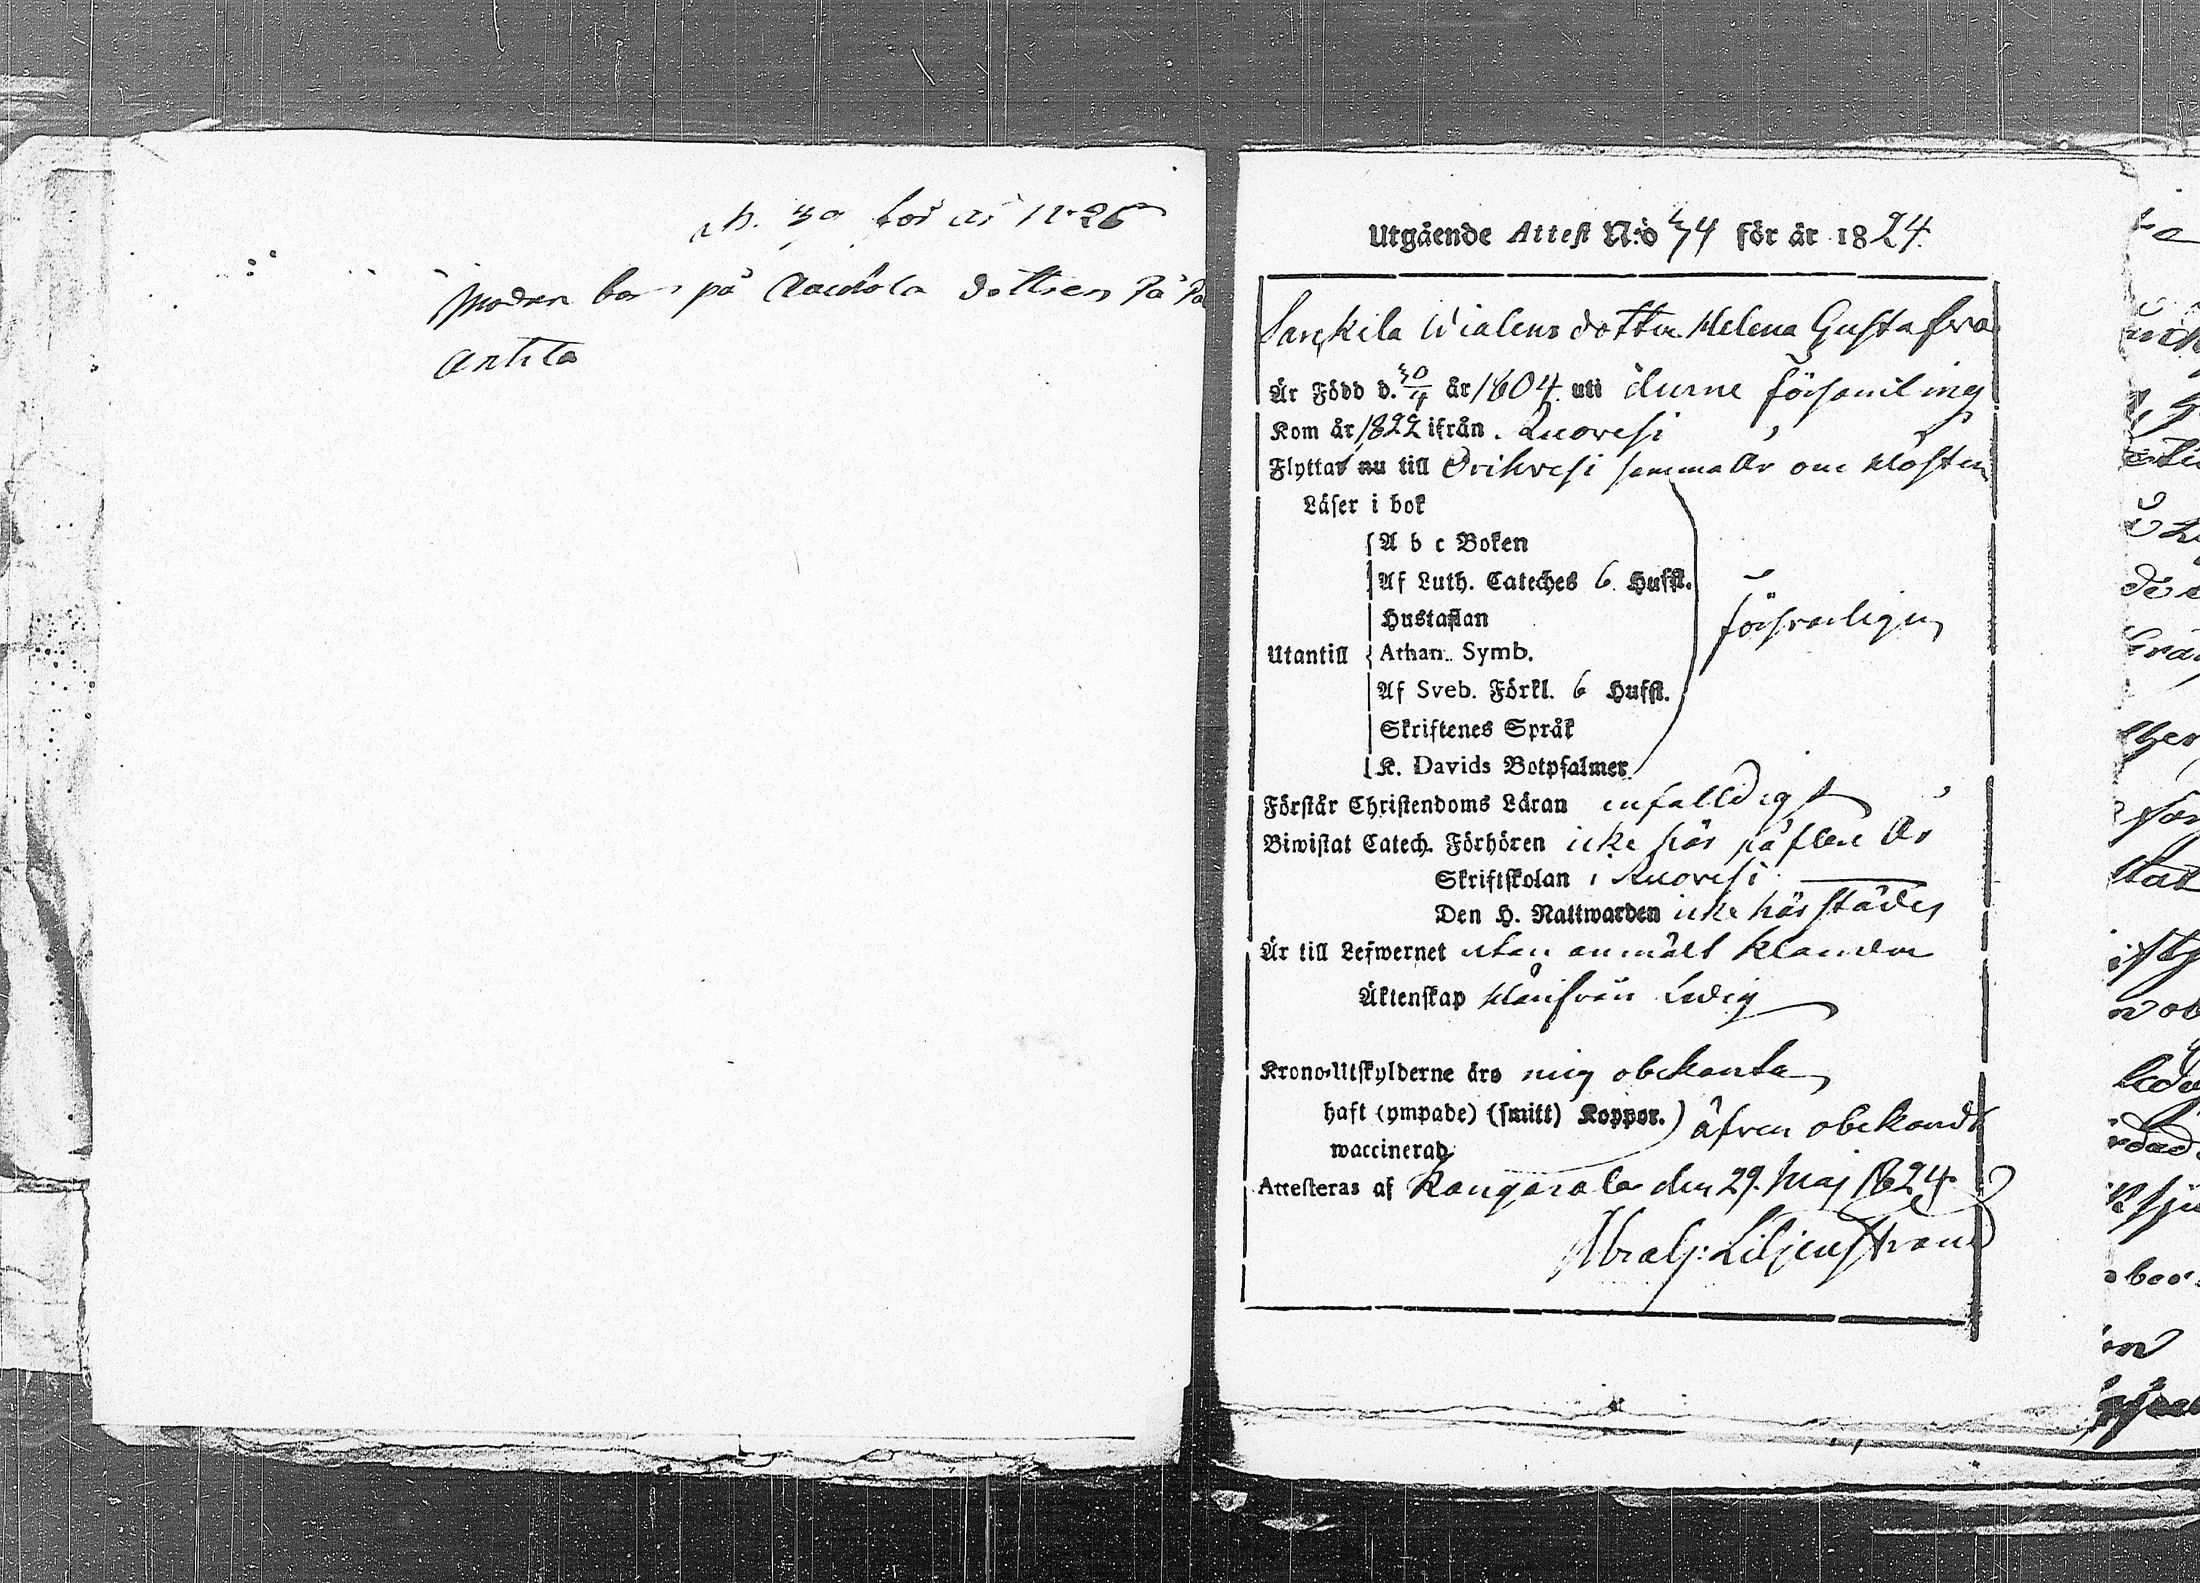 N. 30 för år 1826
Modren bor på Raidola dottren på
Anttila
Utgående Attest N:o 74 för år 1824.
Sarkila Wialens dotter Helena Gustafva
Är Född d. 30/4 år 1804. uti durne församling
Kom år 1822 ifrån Ruovesi
Flyttar nu till Orihvesi samma År om Hösten
Läser i bok
A b c Boken
Af Luth. Cateches 6. Hufst.
Hustaflan
försvarligen
Utantill Athan. Symb.
Af Sveb. Förkl. 6 Hufst.
Skriftenes Språk
K. Davids Botpsalmer
Förstår Christendoms Läran enfalldigt
Biwistat Catech. Förhören icke här på flere År
Skriftskolan i Ruovesi
Den H. Nattwarden icke härstädes
Är till Lefwernet utan anmält klander
Äktenskap Härifrån Ledig
Krono-Utskylderne äro mig obekanta
haft (ympade) (smitt) Koppor.) äfven obekandt
waccinerad
Attesteras af Kangasala den 29. Maj 1824
Abrah: Liljenstrand